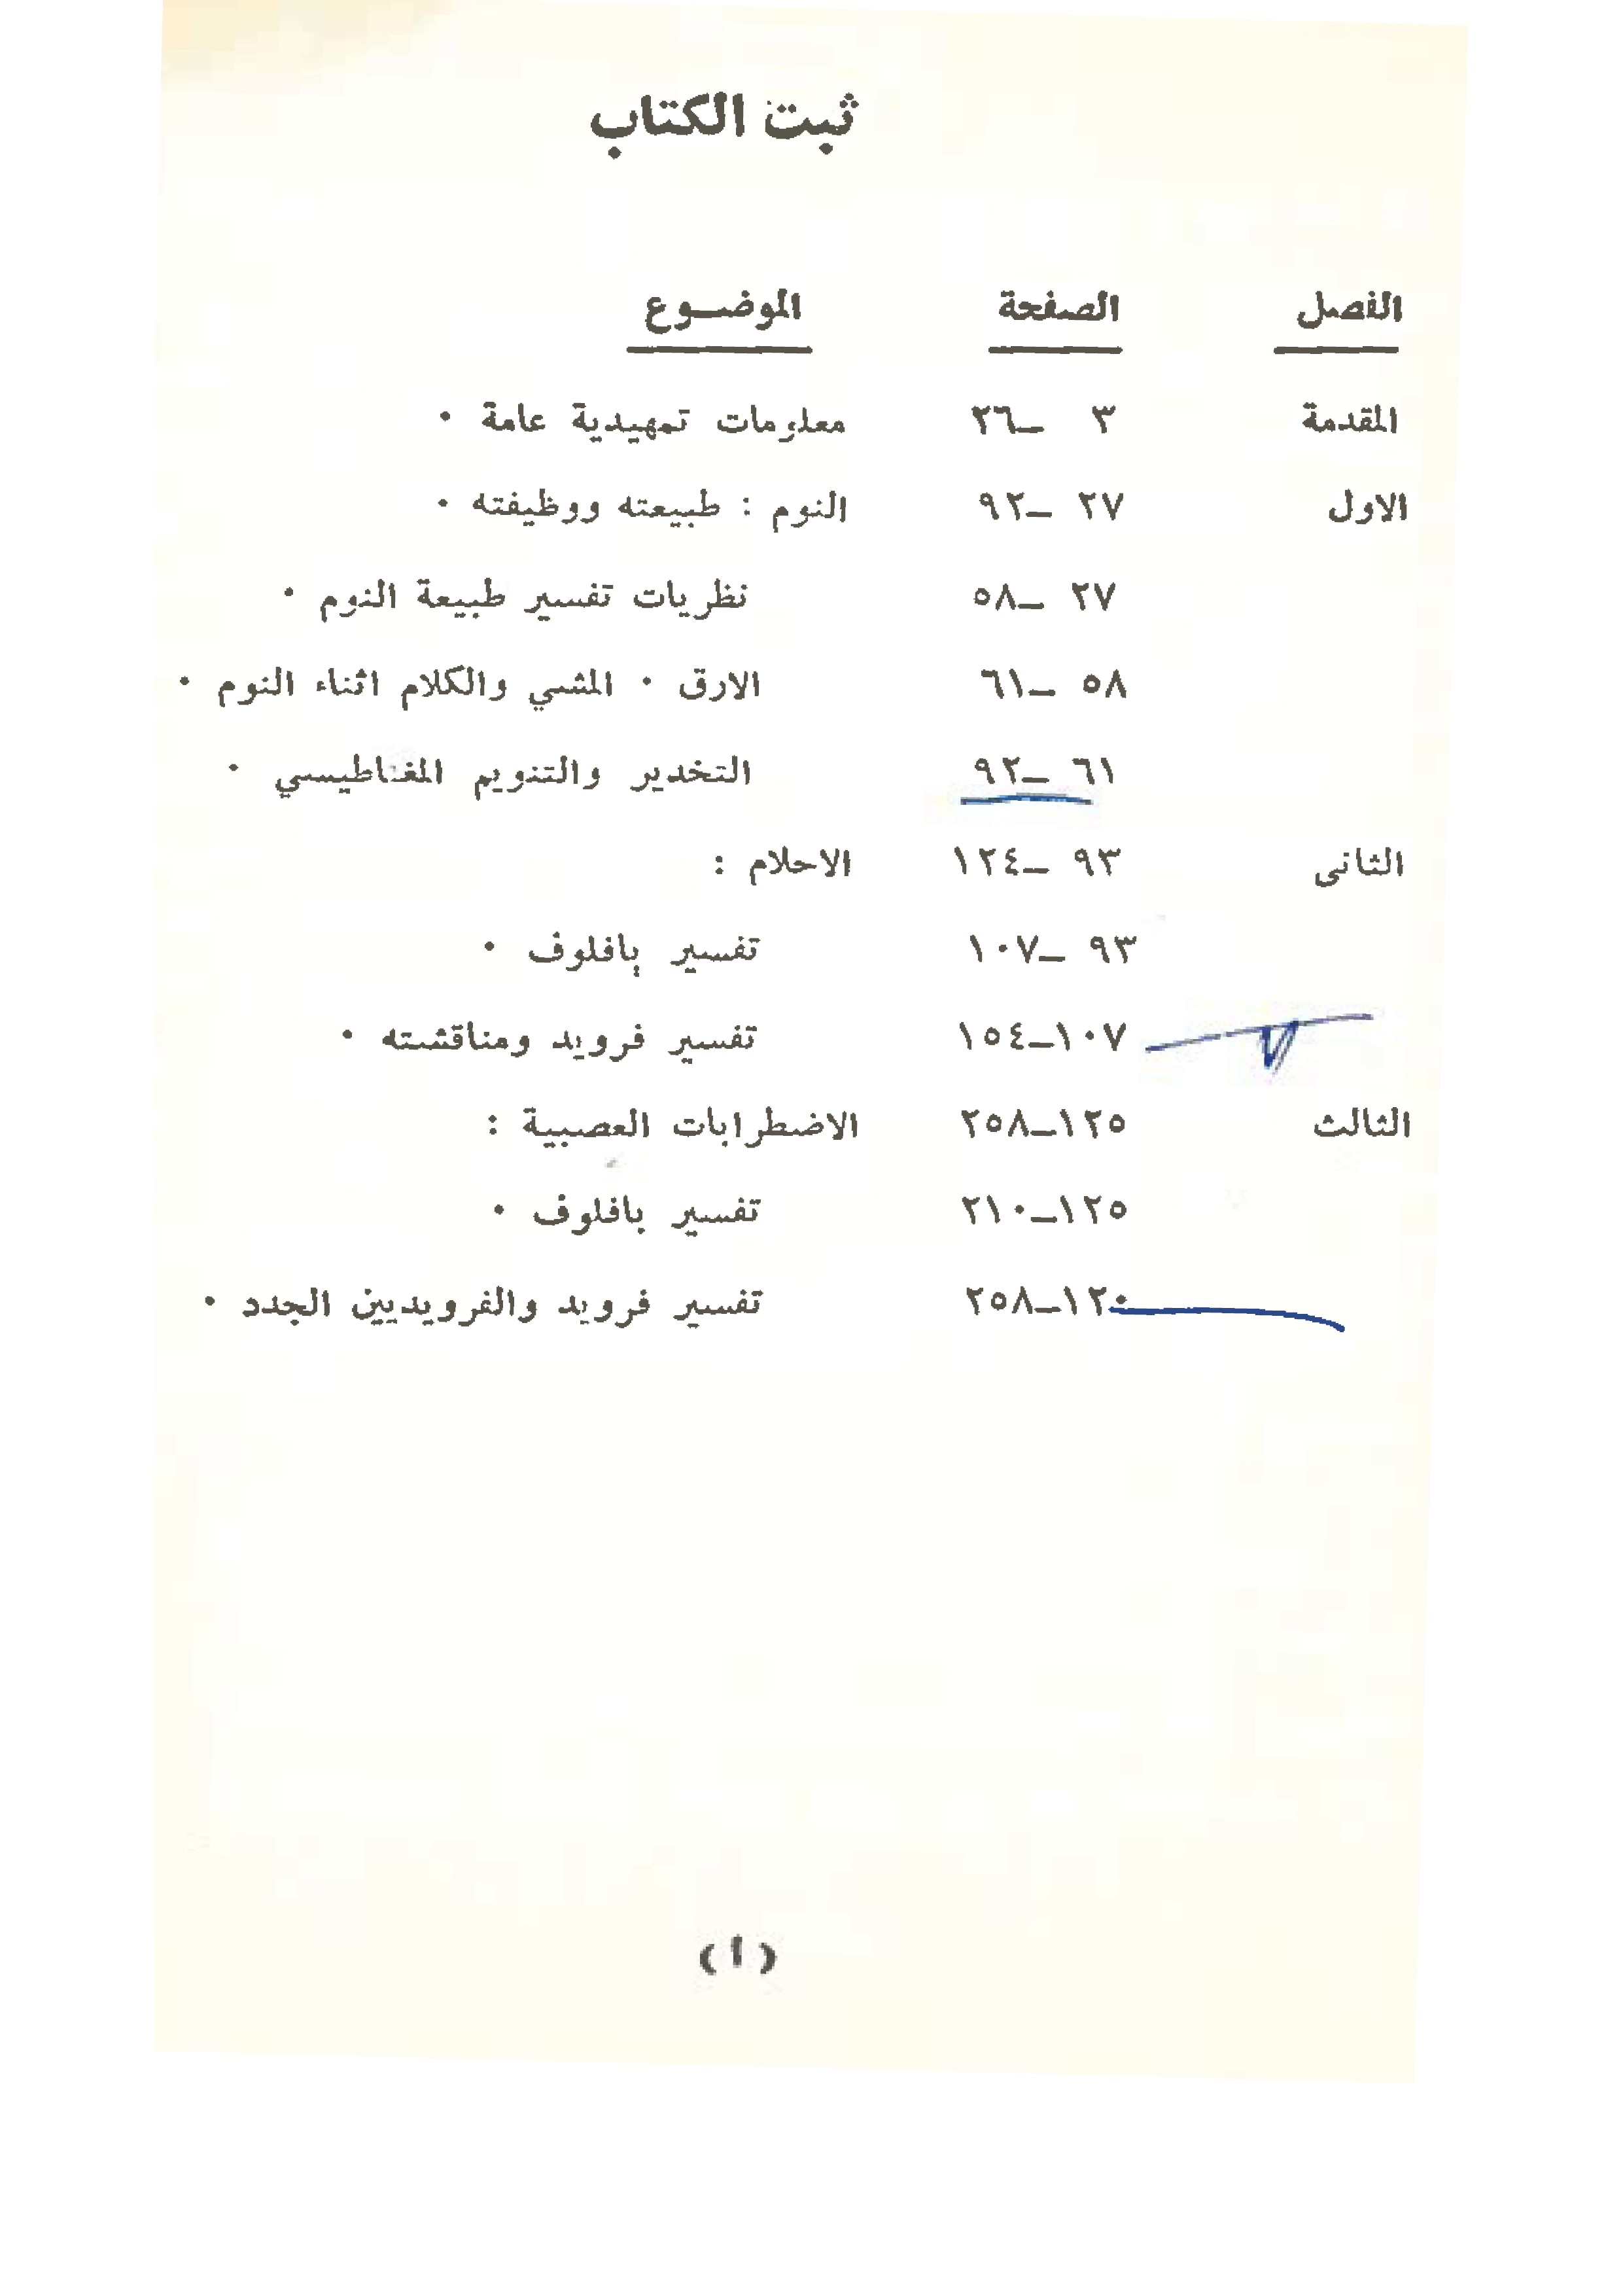 ثبت الكتاب
الفصل الصفحة الموضـوع
المقدمة ٣ ـ٢٦ معلومات تمهيدية عامة ٠
الاول ٢٧ ـ٩٢ النوم : طبيعته ووظيفته ٠
٢٧ ـ٥٨ نظريات تفسير طبيعة النوم ٠
٥٨ ـ٦١ الارق ٠ المشي والكلام اثناء النوم ٠
٦١ ـ٩٢ التخدير والتنويم المغناطيسي ٠
الثانى ٩٣ ـ١٢٤ الاحلام :
٩٣ ـ١٠٧ تفسير بافلوف ٠
١٠٧ـ١٥٤ تفسير فرويد ومناقشته ٠
الثالث ١٢٥ـ٢٥٨ الاضطرابات العصبية :
١٢٥ـ٢١٠ تفسير بافلوف ٠
١٢٠ـ٢٥٨ تفسير فرويد والفرويديين الجدد ٠
(أ)